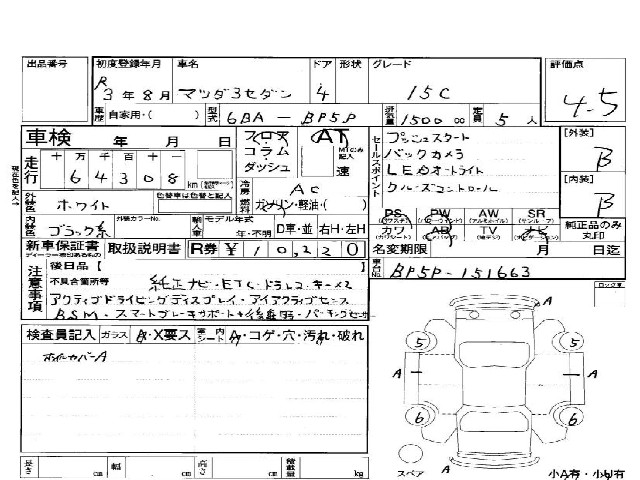 出品番号 初度登録年月 車名 ドア 形状 グレード 評価点
R3年8月 マツダ3セダン 4 15C 4.5
車歴 自家用・( ) 型式 6BA-BP5P 排気量 1500 cc 定員 5人
車検 年 月 日 フロア コラム ダッシュ AT MTのみ記入 速
セールスポイント プッシュスタート
バックカメラ
LEDオートライト
クルーズコントロール
[外装] B
[内装] B
走行 十万千百十一 64308 km
冷房 AC
燃料 ガソリン・軽油・( )
外装色 ホワイト 色替車は色替と記入
内装色 ブラック系 外装カラーNo. 輸入車 モデル年式 年・不明 D車・並 右H・左H
PS PW AW SR
カワ AB TV ナビ
純正品のみ丸印
新車保証書 取扱説明書 R券 ¥10,220 名変期限 月 日迄
ディーラー印のあるもの
注意事項 後日品【
不具合箇所等 純正ナビ・ETC・ドラレコ・キー×2
アクティブドライビングディスプレイ・アイアクティブセンス
BSM・スマートブレーキサポート
車台No. BP5P-151663
検査員記入 ガラス A・X要ス 室内シート A・コゲ・穴・汚れ・破れ
ホイルカバーA
長さ cm 幅 cm 高さ cm 積載量 kg
A
5 5
A A
6 6
スペア A
小A有・小U有